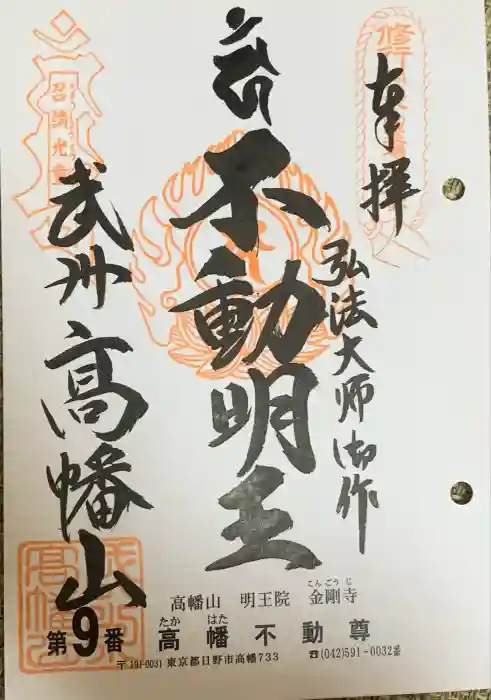 奉拝
弘法大師御作
不動明王
武州
高幡山
第9番
高幡山 明王院 金剛寺
こんごうじ
高幡不動尊
たかはた
〒191-0031 東京都日野市高幡733
☎(042)591-0032番